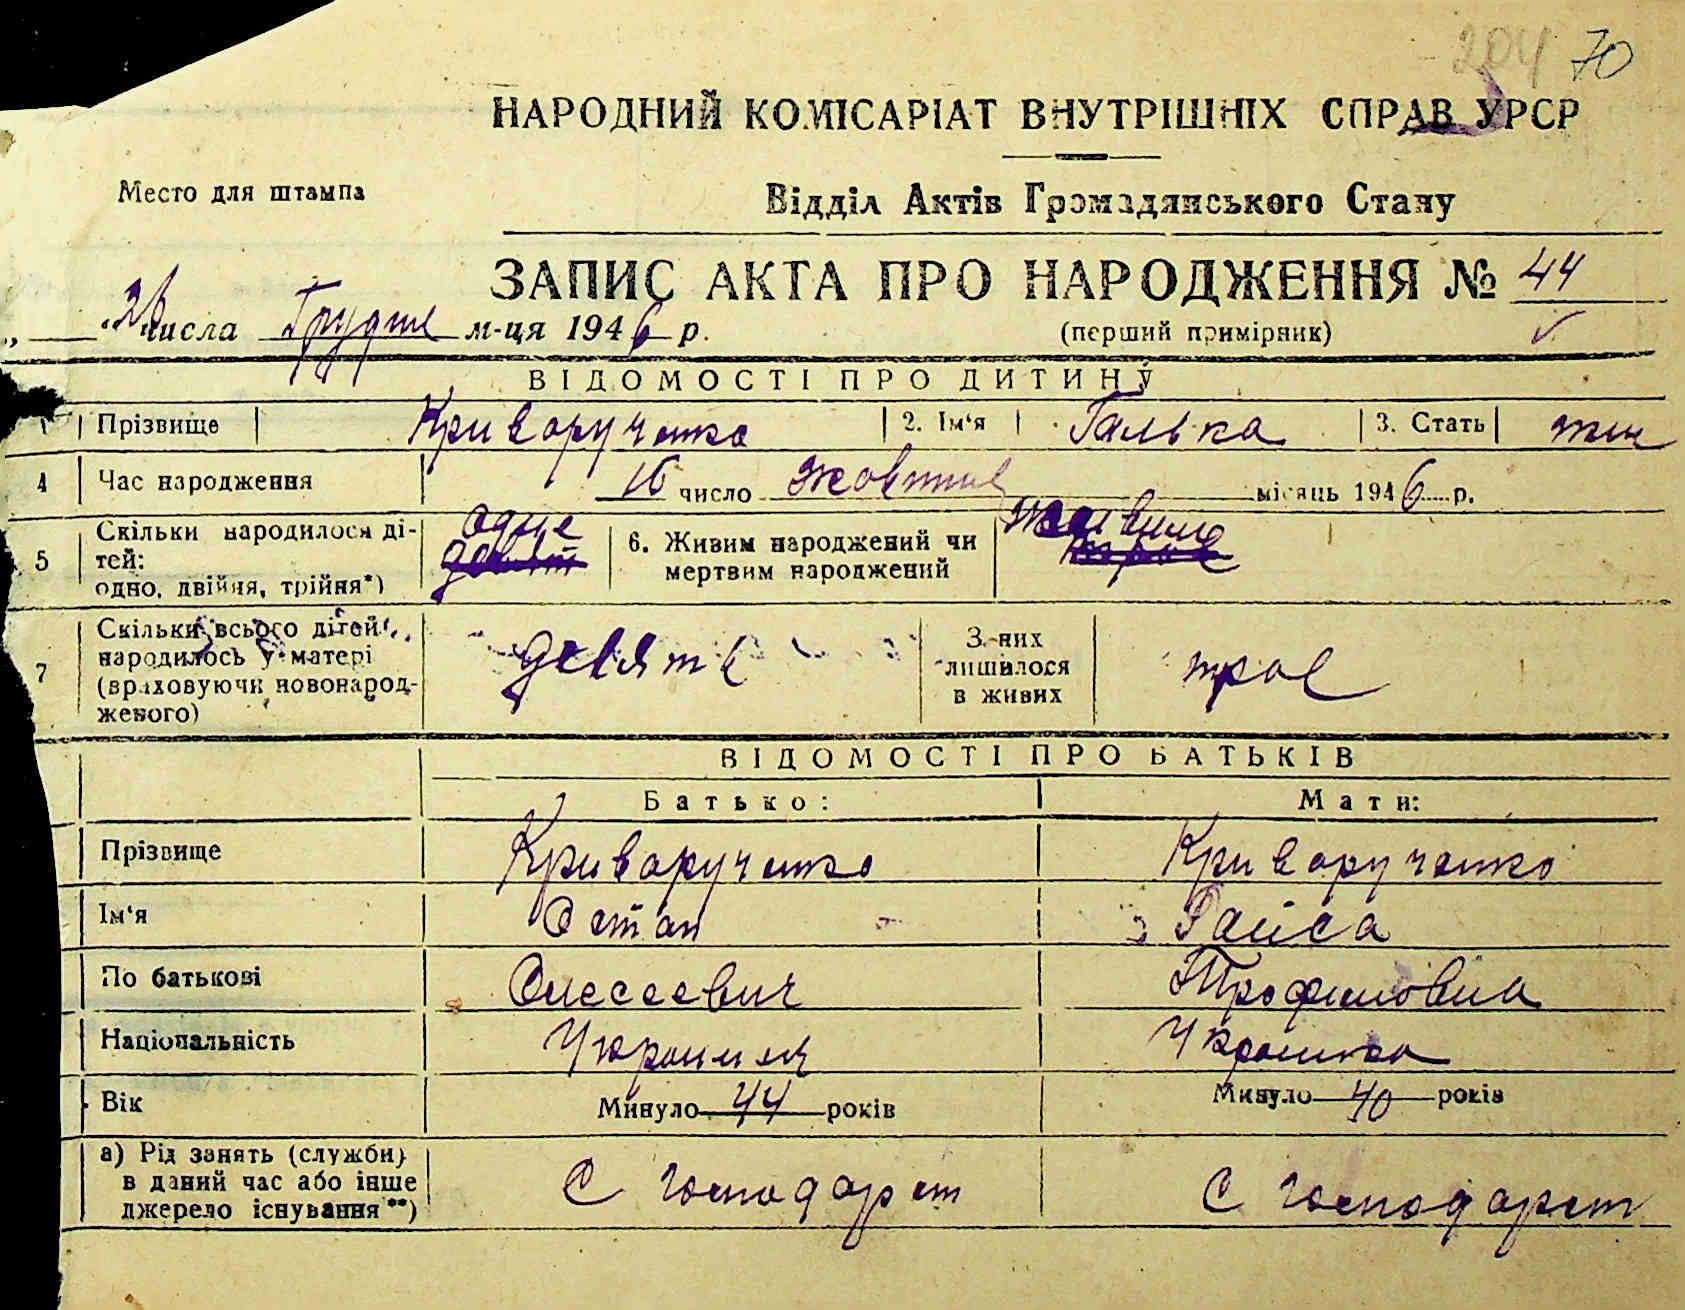 204 70
НАРОДНИЙ КОМІСАРІАТ ВНУТРІШНІХ СПРАВ УРСР
Место для штампа
Відділ Актів Громадянського Стану
ЗАПИС АКТА ПРО НАРОДЖЕННЯ № 44
„ “ 26 числа Грудня м-ця 1946 р.
(перший примірник)
ВІДОМОСТІ ПРО ДИТИНУ
1 Прізвище Криворученко 2. Ім‘я Галька 3. Стать жін
4 Час народження 16 число жовтня місяць 1946 р.
5 Скільки народилося ді-
тей:
одно, двійня, трійня*)
одне
девят
6. Живим народжений чи
мертвим народжений
живим
троє
7 Скільки всього дітей
народилось у матері
(враховуючи новонарод-
женого)
девять
З них
лишилося
в живих
троє
ВІДОМОСТІ ПРО БАТЬКІВ
Батько: Мати:
Прізвище Криворученко Криворученко
Ім‘я Остап Раиса
По батькові Олесеевич Трофимовна
Національність Украинец Украинка
Вік Минуло 44 років Минуло 40 років
а) Рід занять (служби)
в даний час або інше
джерело існування**)
С господарст С господарст